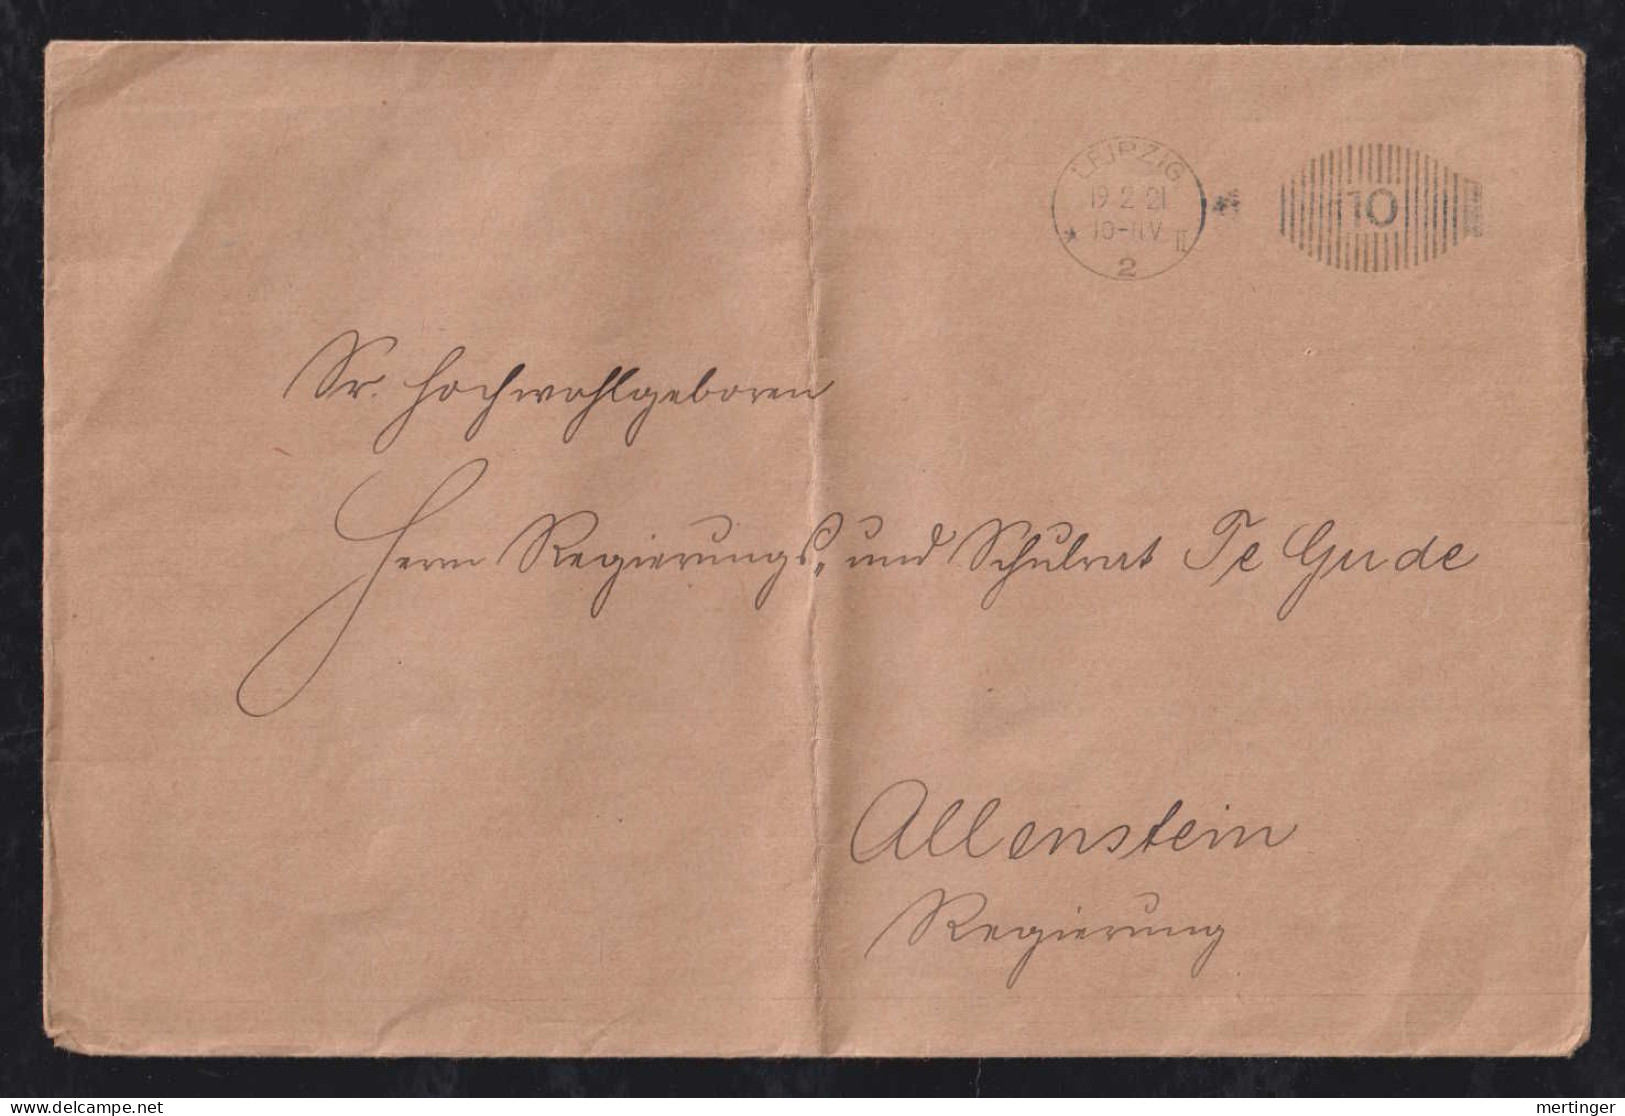 LEIPZIG
19.2.21
10-11V
* II
2
10
Sr. Hochwohlgeboren
Herrn Regierungs- und Schulrat Te Gude
Allenstein
Regierung
delcampe.net
mertinger